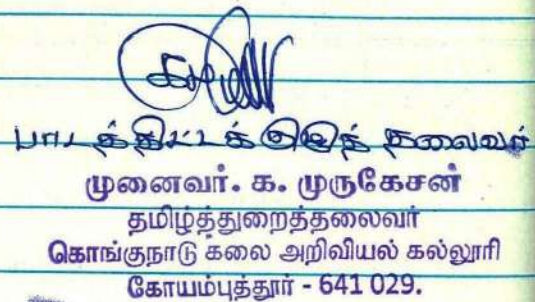 பாடத்திட்டக் குழுத் தலைவர்
முனைவர். க. முருகேசன்
தமிழ்த்துறைத்தலைவர்
கொங்குநாடு கலை அறிவியல் கல்லூரி
கோயம்புத்தூர் - 641 029.